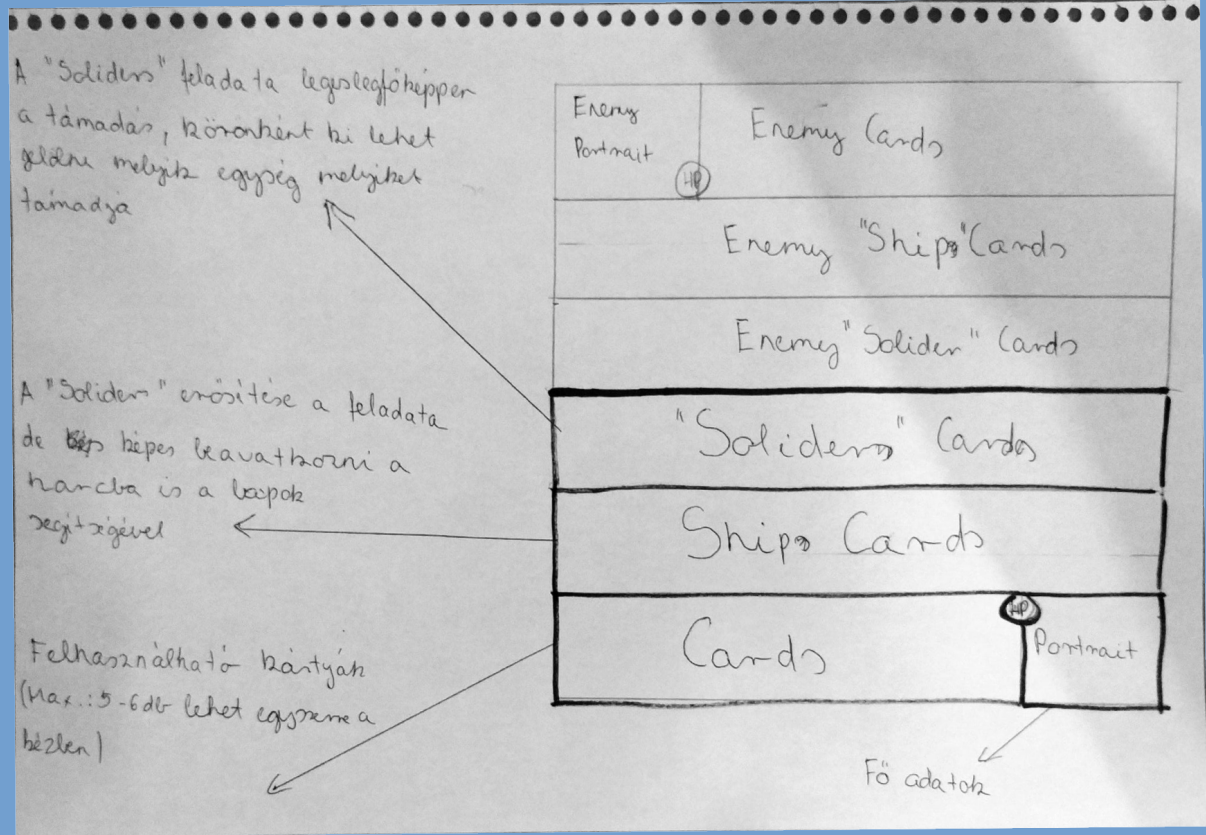 A "Soliders" feladata legeslegfőképpen
a támadás, körönként ki lehet
jelölni melyik egység melyiket
támadja
A "Soliders" erősítése a feladata
de képes beavatkozni a
harcba is a lapok
segítségével
Felhasználható kártyák
(Max.: 5-6db lehet egyszerre a
kézben)
Enemy
Portrait
HP
Enemy Cards
Enemy "Ships" Cards
Enemy "Solider" Cards
"Soliders" Cards
Ships Cards
Cards
HP
Portrait
Fő adatok